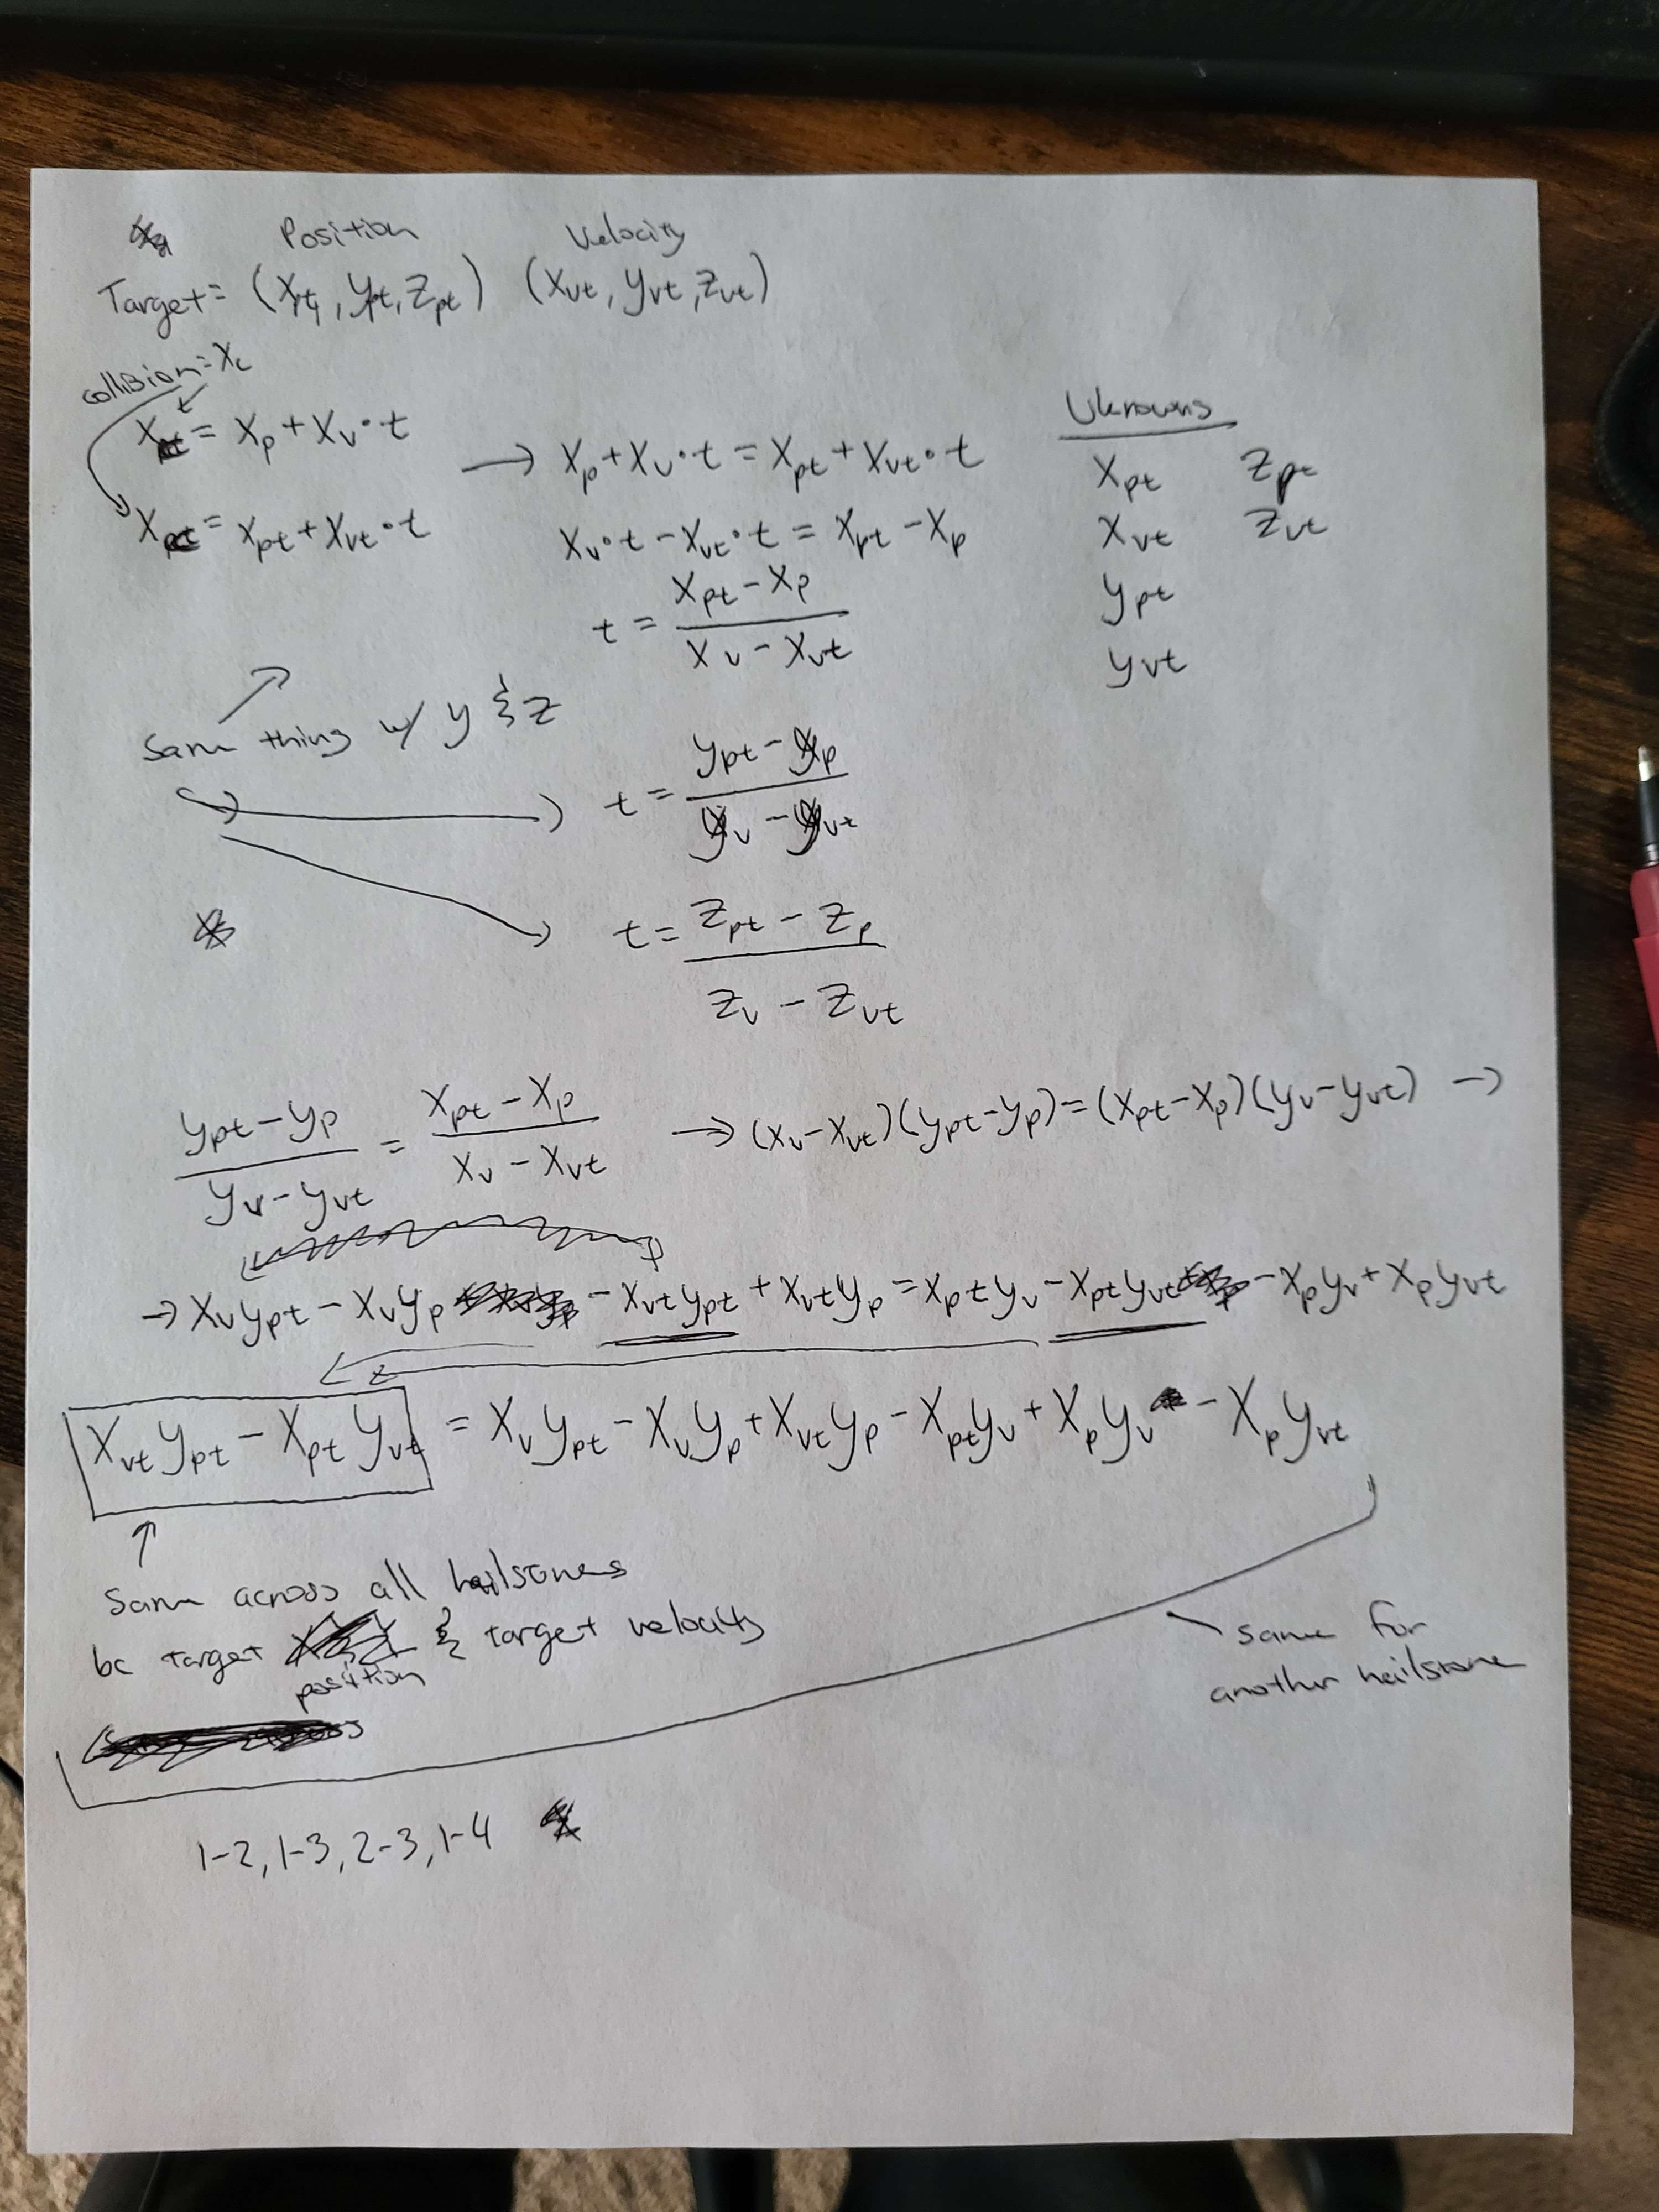 Position Velocity
Target = (x_pt, y_pt, z_pt) (x_vt, y_vt, z_vt)
collision = x_c
x_c = x_p + x_v · t
x_c = x_pt + x_vt · t
→ x_p + x_v · t = x_pt + x_vt · t
x_v · t - x_vt · t = x_pt - x_p
t = (x_pt - x_p) / (x_v - x_vt)
Uknowns
x_pt z_pt
x_vt z_vt
y_pt
y_vt
Same thing w/ y & z
t = (y_pt - y_p) / (y_v - y_vt)
t = (z_pt - z_p) / (z_v - z_vt)
(y_pt - y_p) / (y_v - y_vt) = (x_pt - x_p) / (x_v - x_vt) → (x_v - x_vt)(y_pt - y_p) = (x_pt - x_p)(y_v - y_vt) →
→ x_v y_pt - x_v y_p - x_vt y_pt + x_vt y_p = x_pt y_v - x_pt y_vt - x_p y_v + x_p y_vt
x_vt y_pt - x_pt y_vt = x_v y_pt - x_v y_p + x_vt y_p - x_pt y_v + x_p y_v - x_p y_vt
Same across all hailstones
bc target position & target velocity
same for
another hailstone
1-2, 1-3, 2-3, 1-4